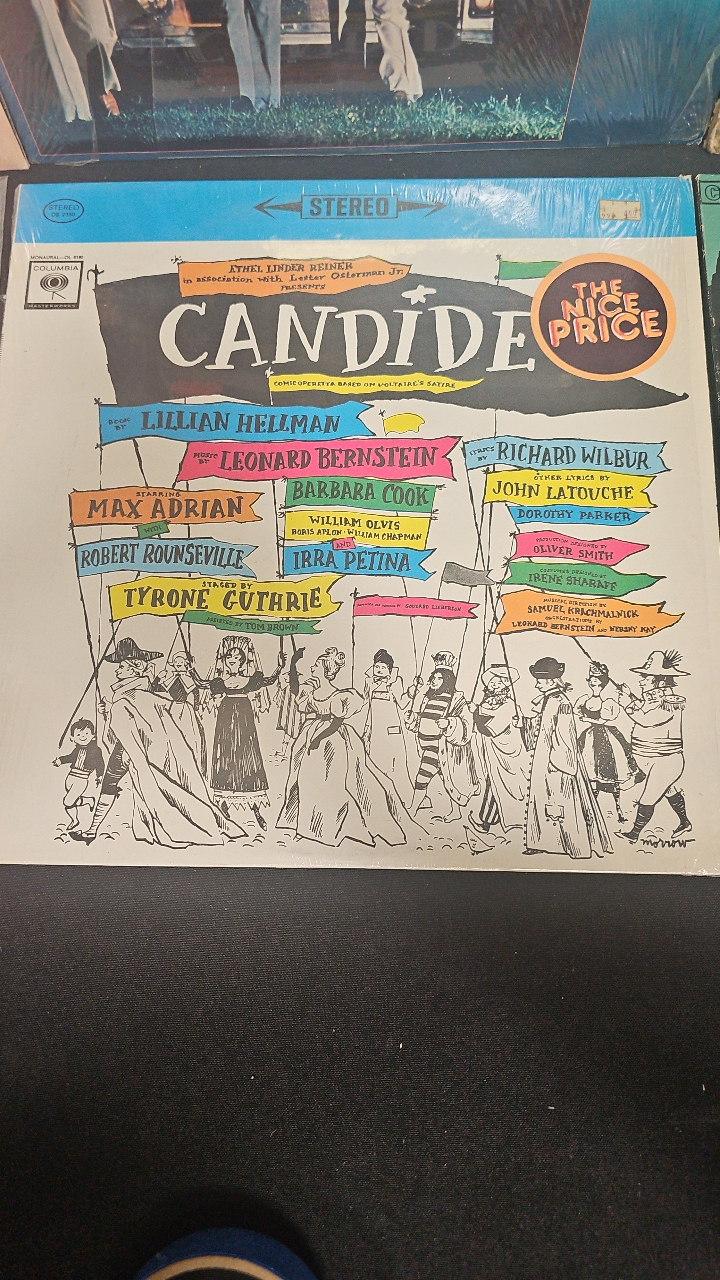 STEREO
OS 2350
STEREO
MONAURAL—OL 5180
COLUMBIA
MASTERWORKS
ETHEL LINDER REINER
in association with Lester Osterman Jr.
PRESENTS
CANDIDE
THE
NICE
PRICE
COMIC OPERETTA BASED ON VOLTAIRE'S SATIRE
BOOK BY LILLIAN HELLMAN
MUSIC BY LEONARD BERNSTEIN
LYRICS BY RICHARD WILBUR
OTHER LYRICS BY
JOHN LATOUCHE
DOROTHY PARKER
STARRING
MAX ADRIAN
WITH
ROBERT ROUNSEVILLE
BARBARA COOK
WILLIAM OLVIS
BORIS APLON · WILLIAM CHAPMAN
AND
IRRA PETINA
PRODUCTION DESIGNED BY
OLIVER SMITH
COSTUMES DESIGNED BY
IRENE SHARAFF
STAGED BY
TYRONE GUTHRIE
ASSISTED BY TOM BROWN
GODDARD LIEBERSON
MUSICAL DIRECTION BY
SAMUEL KRACHMALNICK
ORCHESTRATIONS BY
LEONARD BERNSTEIN AND HERSHY KAY
morrow